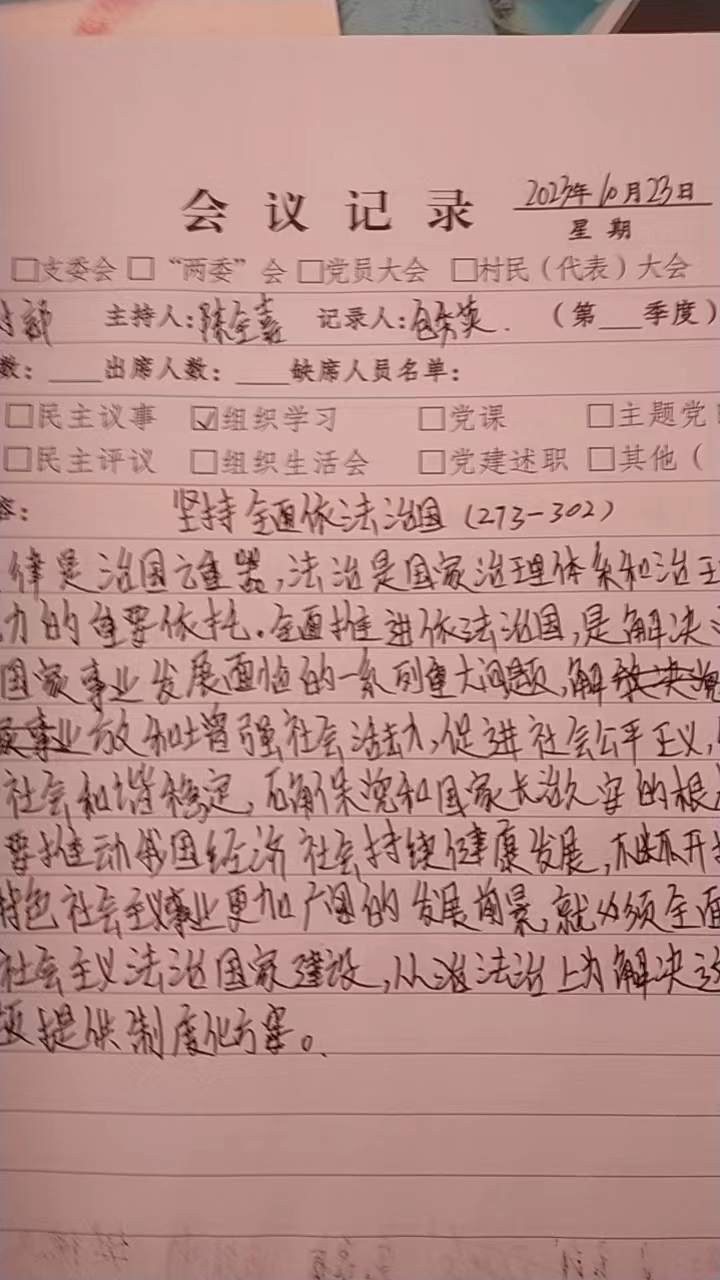 会议记录 2023年10月23日
星期
□支委会 □“两委”会 □党员大会 □村民（代表）大会
主持人: 记录人: （第___季度）
数: ___出席人数: ___缺席人员名单:
□民主议事 ☑组织学习 □党课 □主题党
□民主评议 □组织生活会 □党建述职 □其他（
容: 坚持全面依法治国（273-302）
律是治国重器,法治是国家治理体系和治理
力的重要依托。全面推进依法治国,是解决
国家事业发展面临的一系列重大问题,解
放和增强社会活力,促进社会公平正义,
社会和谐稳定,确保党和国家长治久安的根
要推动我国经济社会持续健康发展,不断开
特色社会主义事业更加广阔的发展前景,就必须全面
社会主义法治国家建设,从法治上为解决这
提供制度化方案。